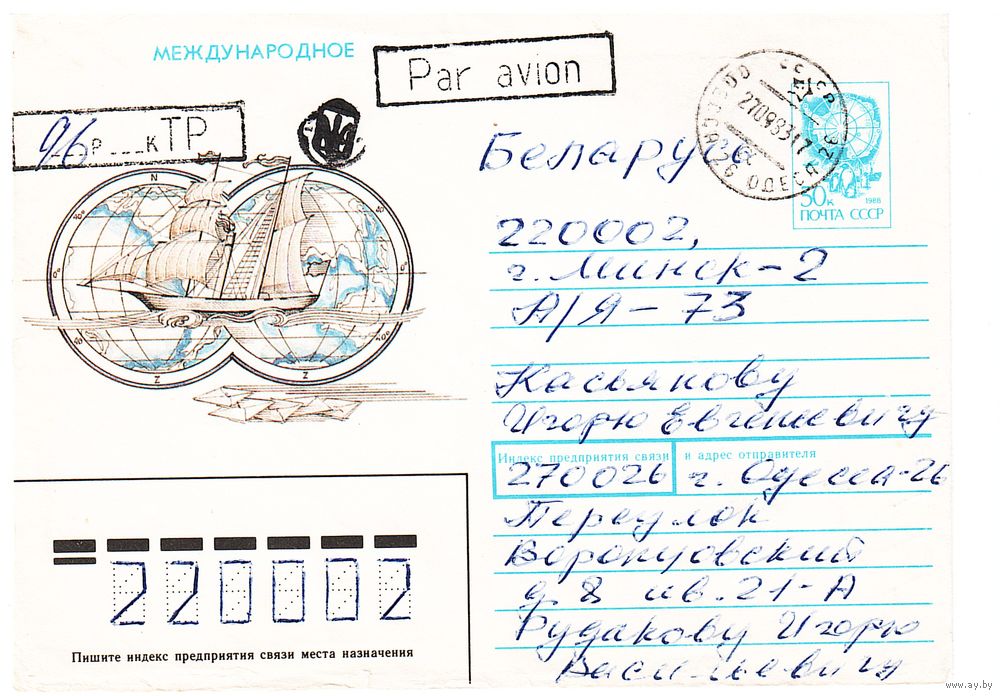 МЕЖДУНАРОДНОЕ
Par avion
96 р ___ к ТР
СССР
270993-17
270026 ОДЕССА 26
50к
1988
ПОЧТА СССР
N N
40° 40°
0° 0°
40° 40°
Z Z
Беларусь
220002,
г. Минск-2
А/Я-73
Касьякову
Игорю Евгениевичу
Индекс предприятия связи и адрес отправителя
270026 г. Одесса-26
Переулок
д. 8 кв. 21-А
Рудакову Игорю
Васильевичу
220002
Пишите индекс предприятия связи места назначения
www.ay.by